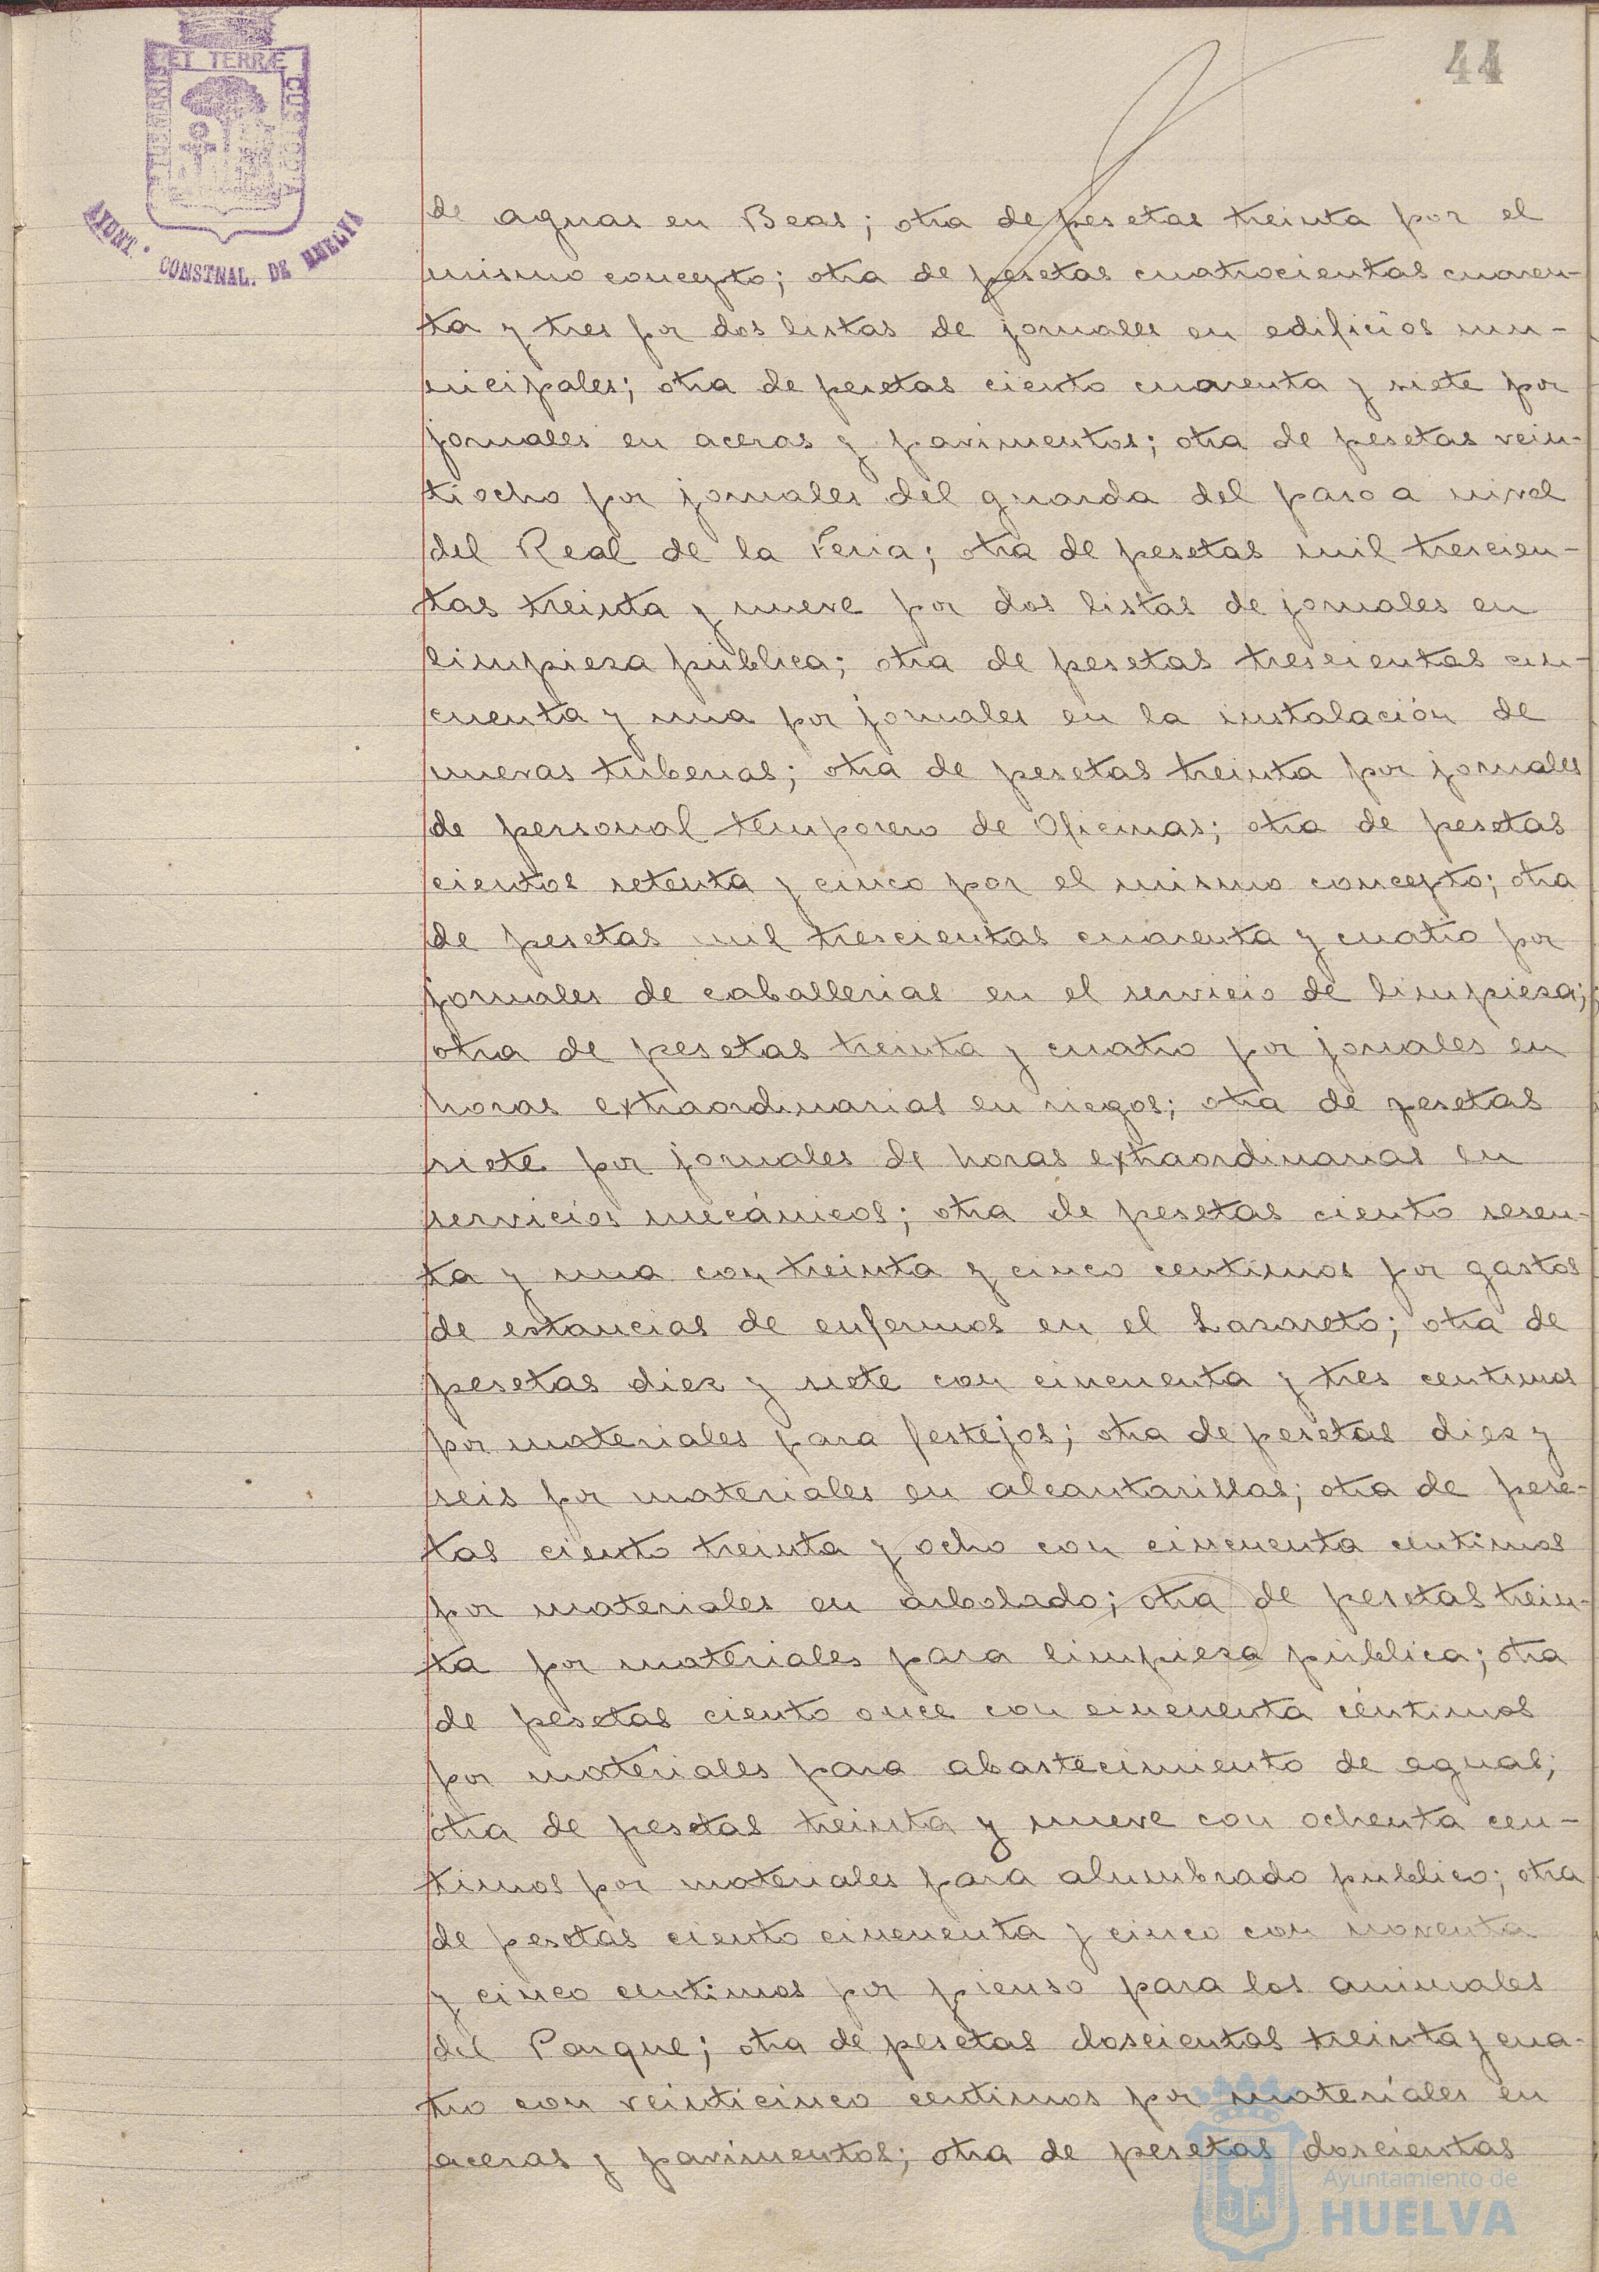 44
ET TERRÆ
AYUNT. CONSTNAL. DE HUELVA
de aguas en Beas; otra de pesetas treinta por el
mismo concepto; otra de pesetas cuatrocientas cuaren-
ta y tres por dos listas de jornales en edificios mu-
nicipales; otra de pesetas ciento cuarenta y siete por
jornales en aceras y pavimentos; otra de pesetas vein-
tiocho por jornales del guarda del paso a nivel
del Real de la Feria; otra de pesetas mil trescien-
tas treinta y nueve por dos listas de jornales en
limpieza pública; otra de pesetas trescientas cin-
cuenta y una por jornales en la instalación de
nuevas tuberias; otra de pesetas treinta por jornales
de personal temporero de Oficinas; otra de pesetas
cientos setenta y cinco por el mismo concepto; otra
de pesetas mil trescientas cuarenta y cuatro por
jornales de caballerias en el servicio de limpieza;
otra de pesetas treinta y cuatro por jornales en
horas extraordinarias en riegos; otra de pesetas
siete por jornales de horas extraordinarias en
servicios mecánicos; otra de pesetas ciento sesen-
ta y una con treinta y cinco centimos por gastos
de estancias de enfermos en el Lazareto; otra de
pesetas diez y siete con cincuenta y tres centimos
por materiales para festejos; otra de pesetas diez y
seis por materiales en alcantarillas; otra de pese-
tas ciento treinta y ocho con cincuenta centimos
por materiales en arbolado; otra de pesetas trein-
ta por materiales para limpieza pública; otra
de pesetas ciento once con cincuenta céntimos
por materiales para abastecimiento de aguas;
otra de pesetas treinta y nueve con ochenta cen-
timos por materiales para alumbrado publico; otra
de pesetas ciento cincuenta y cinco con noventa
y cinco centimos por pienso para los animales
del Parque; otra de pesetas doscientas treinta y cua-
tro con veinticinco centimos por materiales en
aceras y pavimentos; otra de pesetas doscientas
Ayuntamiento de
HUELVA